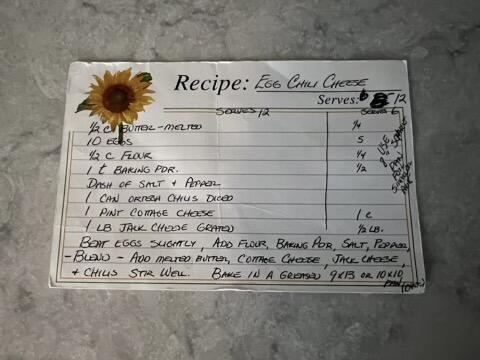 Recipe: EGG CHILI CHEESE
Serves: 6 12
SERVES 12 SERVES 6
1/2 C BUTTER - MELTED 1/4
10 EGGS 5
1/2 C FLOUR 1/4
1 t BAKING PDR. 1/2
DASH OF SALT + PEPPER
1 CAN ORTEGA CHILIS DICED
1 PINT COTTAGE CHEESE 1 C
1 LB JACK CHEESE GRATED 1/2 LB.
BEAT EGGS SLIGHTLY, ADD FLOUR, BAKING PDR, SALT, PEPPER,
- BLEND - ADD MELTED BUTTER, COTTAGE CHEESE, JACK CHEESE,
+ CHILIS STIR WELL. BAKE IN A GREASED 9X13 OR 10X10
PAN
USE
PAN